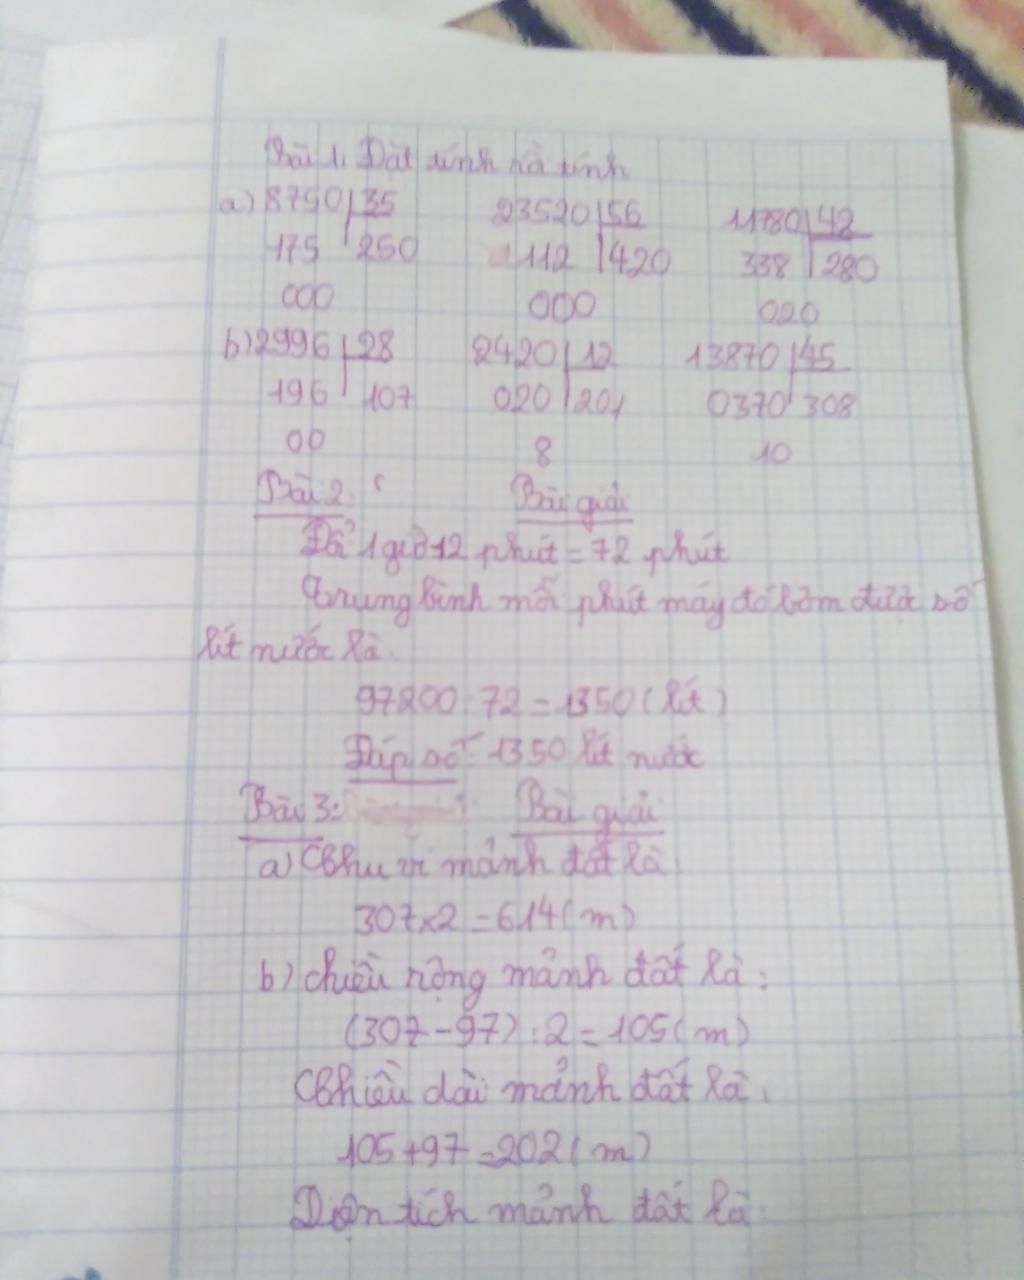 Bài 1. Đặt tính rồi tính
a) 8750 35 23520 56 11780 42
175 250 112 420 338 280
000 000 020
b) 2996 28 2420 12 13870 45
196 107 020 201 0370 308
00 8 10
Bài 2: Bài giải
Đổi 1 giờ 12 phút = 72 phút
Trung bình mỗi phút máy đó bơm được số
lít nước là:
97200 : 72 = 1350 (lít)
Đáp số 1350 lít nước
Bài 3: Bài giải
a) Chu vi mảnh đất là
307 x 2 = 614 (m)
b) chiều rộng mảnh đất là:
(307 - 97) : 2 = 105 (m)
Chiều dài mảnh đất là:
105 + 97 = 202 (m)
Diện tích mảnh đất là: